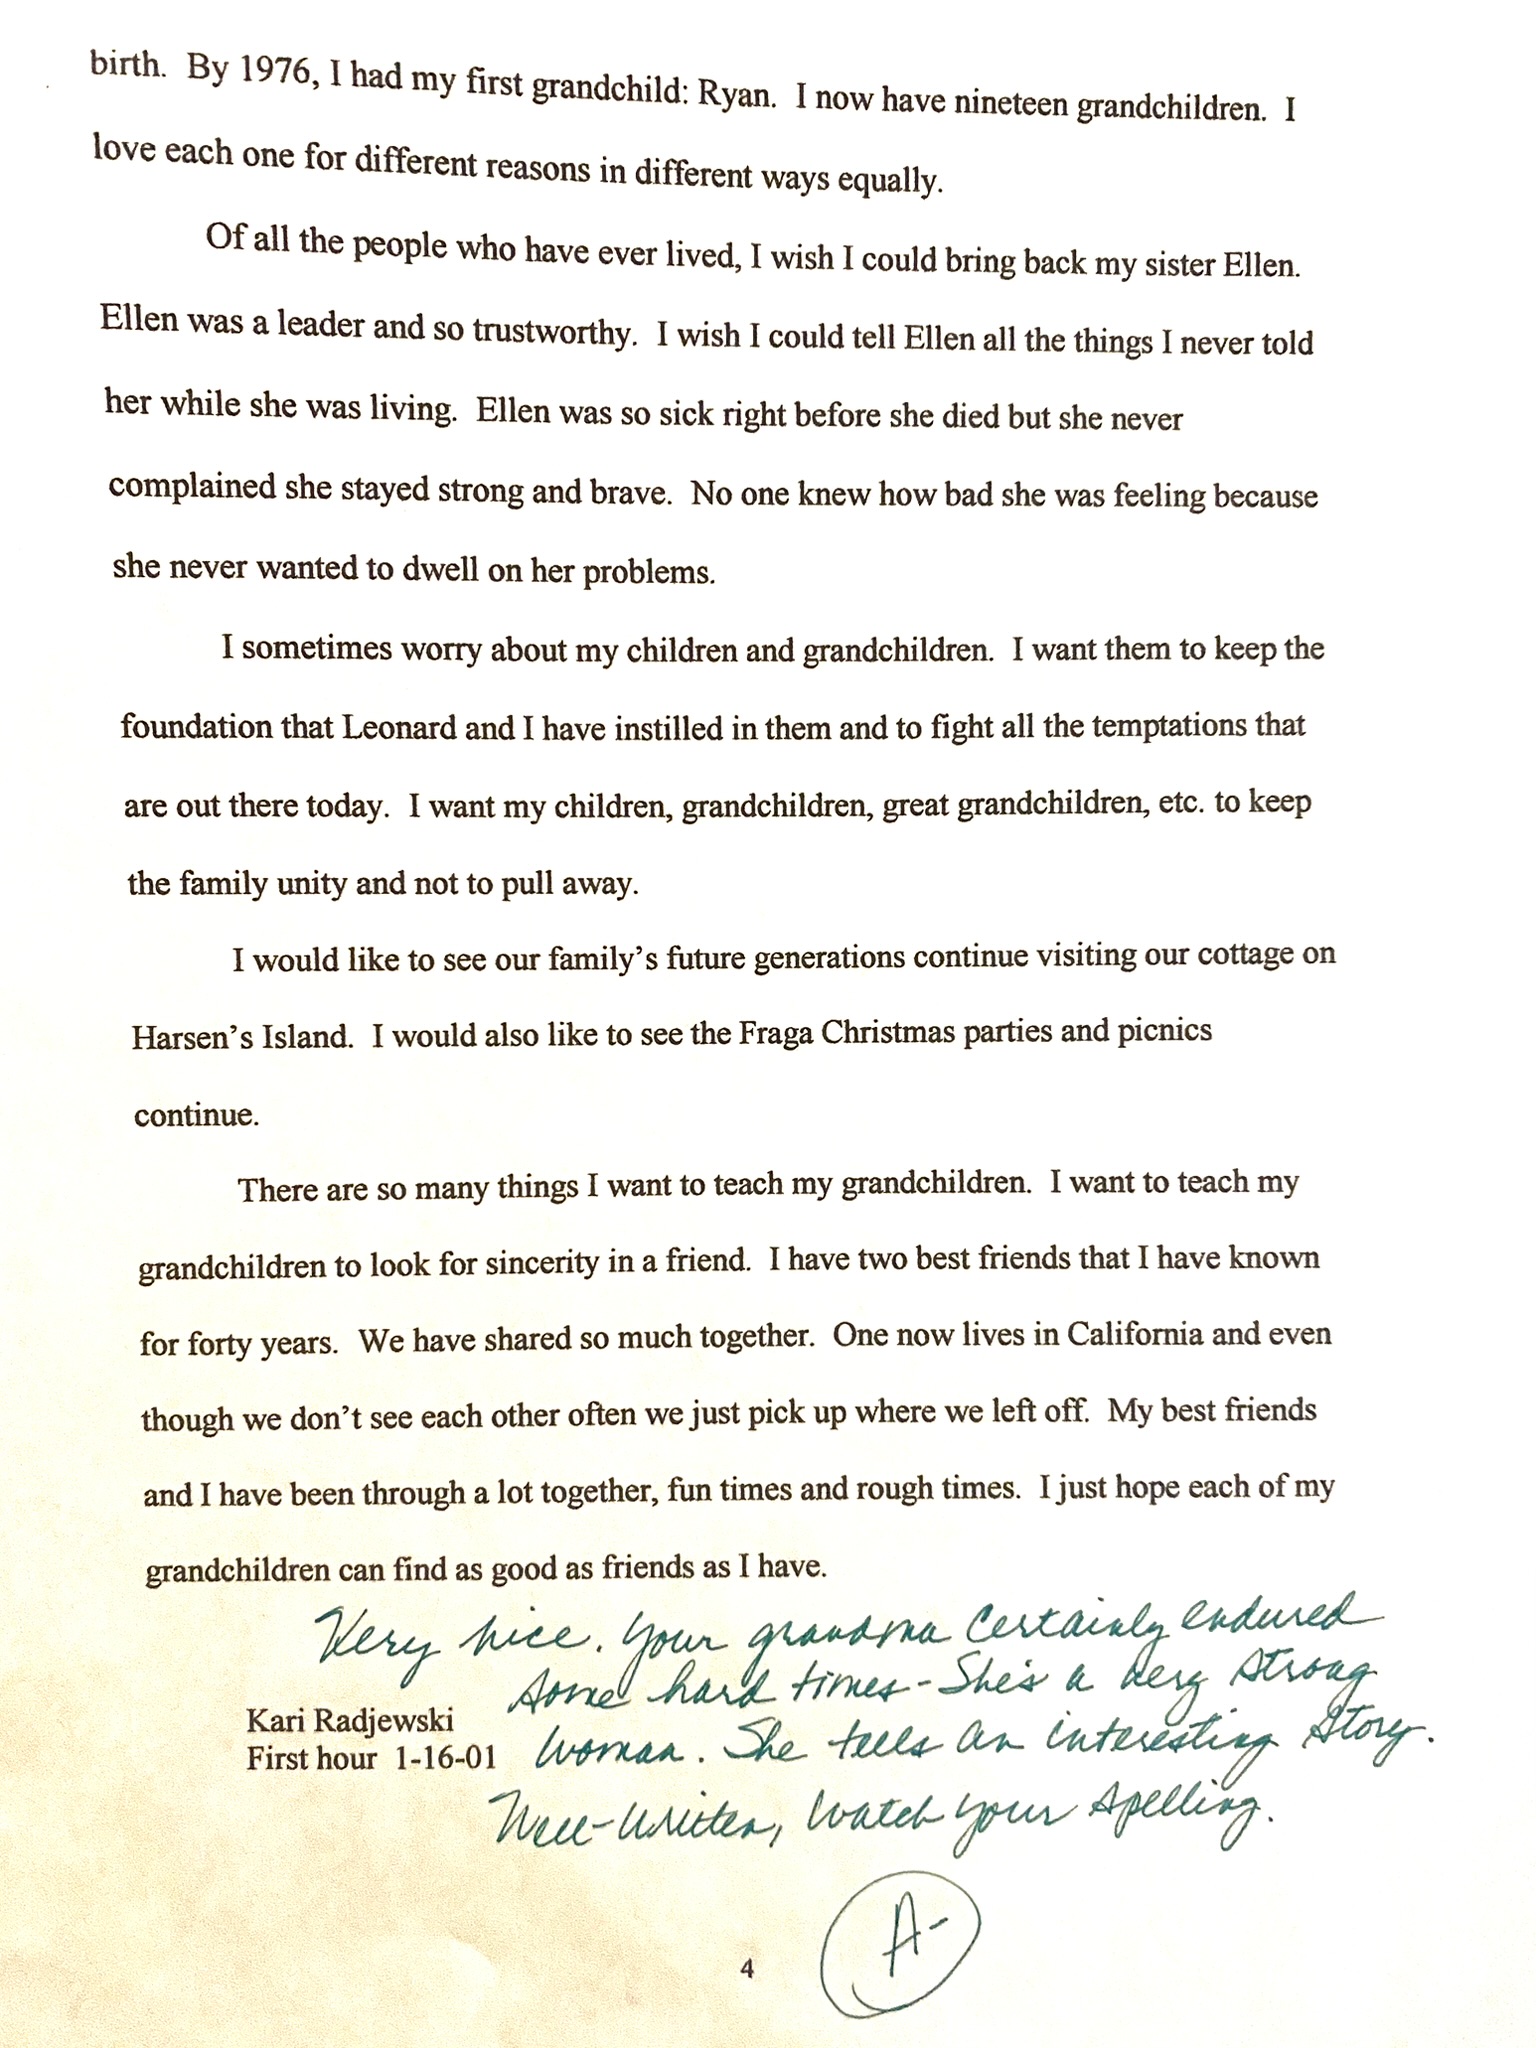 birth.  By 1976, I had my first grandchild: Ryan.  I now have nineteen grandchildren.  I
love each one for different reasons in different ways equally.
Of all the people who have ever lived, I wish I could bring back my sister Ellen.
Ellen was a leader and so trustworthy.  I wish I could tell Ellen all the things I never told
her while she was living.  Ellen was so sick right before she died but she never
complained she stayed strong and brave.  No one knew how bad she was feeling because
she never wanted to dwell on her problems.
I sometimes worry about my children and grandchildren.  I want them to keep the
foundation that Leonard and I have instilled in them and to fight all the temptations that
are out there today.  I want my children, grandchildren, great grandchildren, etc. to keep
the family unity and not to pull away.
I would like to see our family's future generations continue visiting our cottage on
Harsen's Island.  I would also like to see the Fraga Christmas parties and picnics
continue.
There are so many things I want to teach my grandchildren.  I want to teach my
grandchildren to look for sincerity in a friend.  I have two best friends that I have known
for forty years.  We have shared so much together.  One now lives in California and even
though we don't see each other often we just pick up where we left off.  My best friends
and I have been through a lot together, fun times and rough times.  I just hope each of my
grandchildren can find as good as friends as I have.
Very nice. Your grandma certainly endured
some hard times - She's a very strong
woman. She tells an interesting story.
Well-written, watch your spelling.
Kari Radjewski
First hour  1-16-01
A-
4